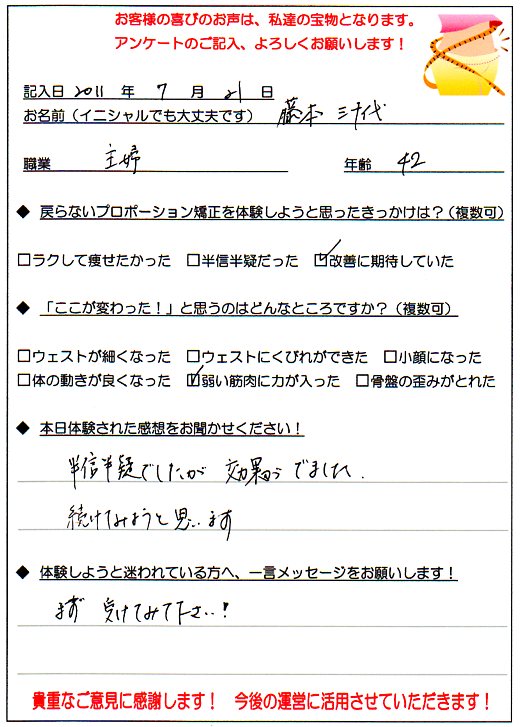 お客様の喜びのお声は、私達の宝物となります。
アンケートのご記入、よろしくお願いします！
記入日 2011 年 7 月 21 日
お名前（イニシャルでも大丈夫です） 藤本 三千代
職業 主婦 年齢 42
◆ 戻らないプロポーション矯正を体験しようと思ったきっかけは？（複数可）
□ラクして痩せたかった □半信半疑だった ☑改善に期待していた
◆ 「ここが変わった！」と思うのはどんなところですか？（複数可）
□ウェストが細くなった □ウェストにくびれができた □小顔になった
□体の動きが良くなった ☑弱い筋肉に力が入った □骨盤の歪みがとれた
◆ 本日体験された感想をお聞かせください！
半信半疑でしたが 効果がでました.
続けてみようと思います
◆ 体験しようと迷われている方へ、一言メッセージをお願いします！
まず 受けてみて下さい！
貴重なご意見に感謝します！ 今後の運営に活用させていただきます！